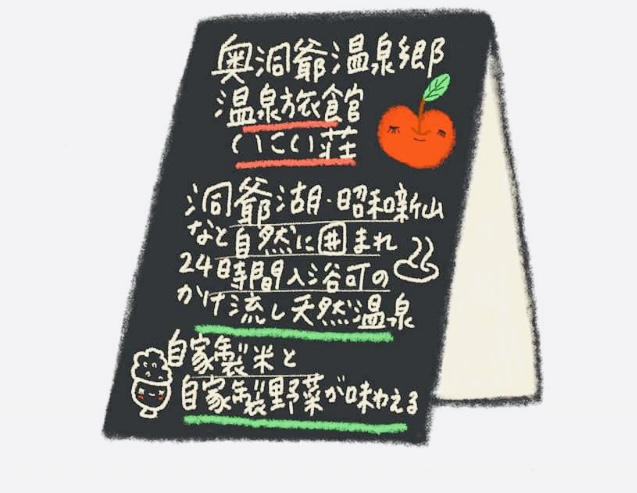 奥洞爺温泉郷
温泉旅館
いこい荘
洞爺湖・昭和新山
など自然に囲まれ
24時間入浴可の
かけ流し天然温泉
自家製米と
自家製野菜が味わえる